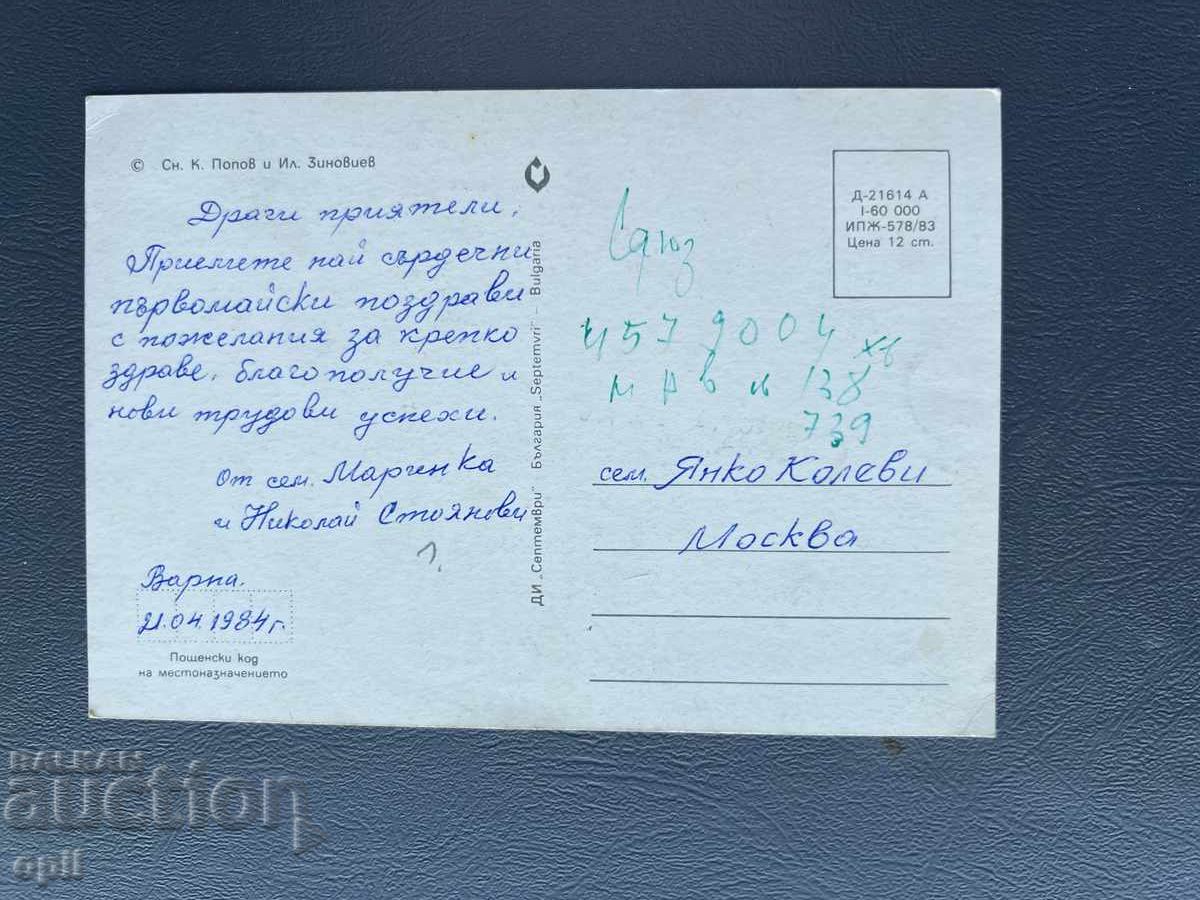 © Сн. К. Попов и Ил. Зиновиев
Драги приятели,
Приемете най сърдечни
първомайски поздрави
с пожелания за крепко
здраве, благополучие и
нови трудови успехи.
От сем. Марченка
и Николай Стоянови
1.
Варна.
21.04.1984г.
Пощенски код
на местоназначението
ДИ „Септември" България „Septemvri" – Bulgaria
Д-21614 А
I-60 000
ИПЖ-578/83
Цена 12 ст.
4579004
138
739
сем. Янко Колеви
Москва
BALKAN
auction
opil